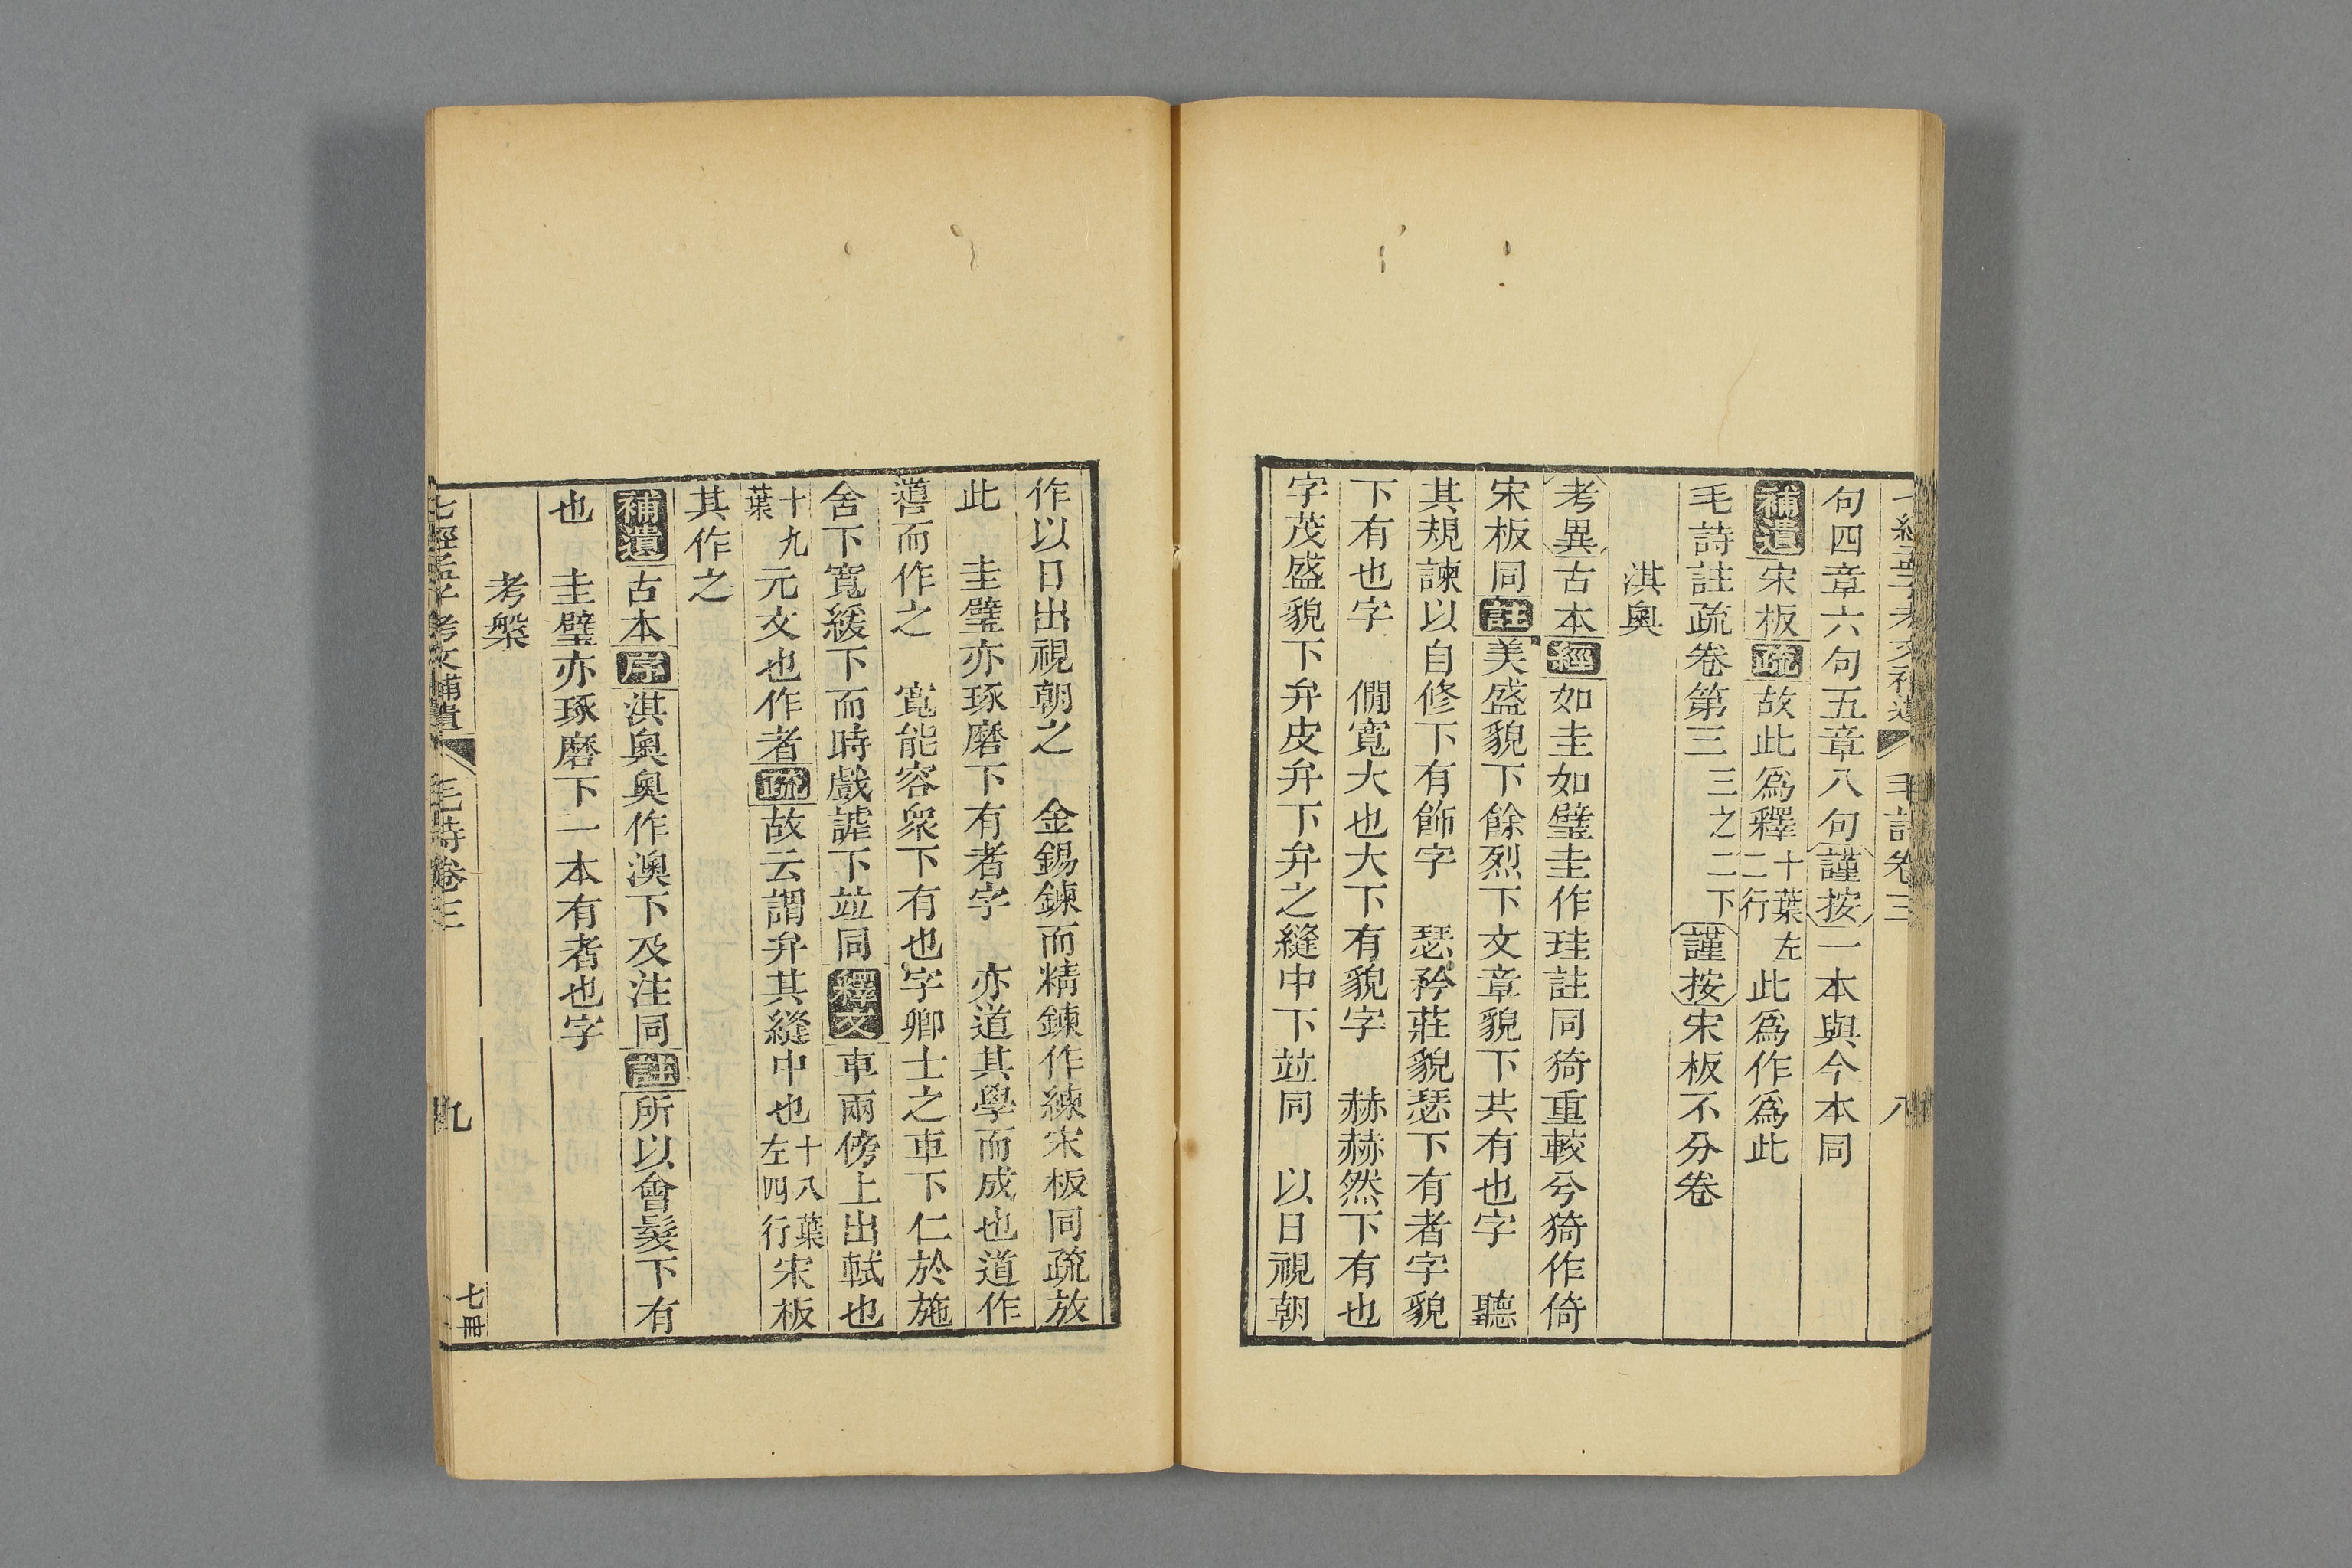 七經孟子考文補遺 毛詩卷三 八
句四章六句五章八句謹按一本與今本同
補遺宋板疏故此爲釋十葉左二行此爲作爲此
毛詩註疏卷第三三之二下謹按宋板不分卷
淇奧
考異古本經如圭如璧圭作珪註同猗重較兮猗作倚
宋板同註美盛貌下餘烈下文章貌下共有也字 聽
其規諫以自修下有飾字 瑟矜莊貌瑟下有者字貌
下有也字 僩寬大也大下有貌字 赫赫然下有也
字茂盛貌下弁皮弁下弁之縫中下竝同 以日視朝
作以日出視朝之 金錫鍊而精鍊作練宋板同疏放
此 圭璧亦琢磨下有者字 亦道其學而成也道作
噵而作之 寬能容衆下有也字卿士之車下仁於施
舍下寬緩下而時戲謔下竝同釋文車兩傍上出軾也
十九葉元文也作者疏故云謂弁其縫中也十八葉左四行宋板
其作之
補遺古本序淇奧奧作澳下及注同註所以會髮下有
也 圭璧亦琢磨下一本有者也字
考槃
七經孟子考文補遺 毛詩卷三 九 七冊